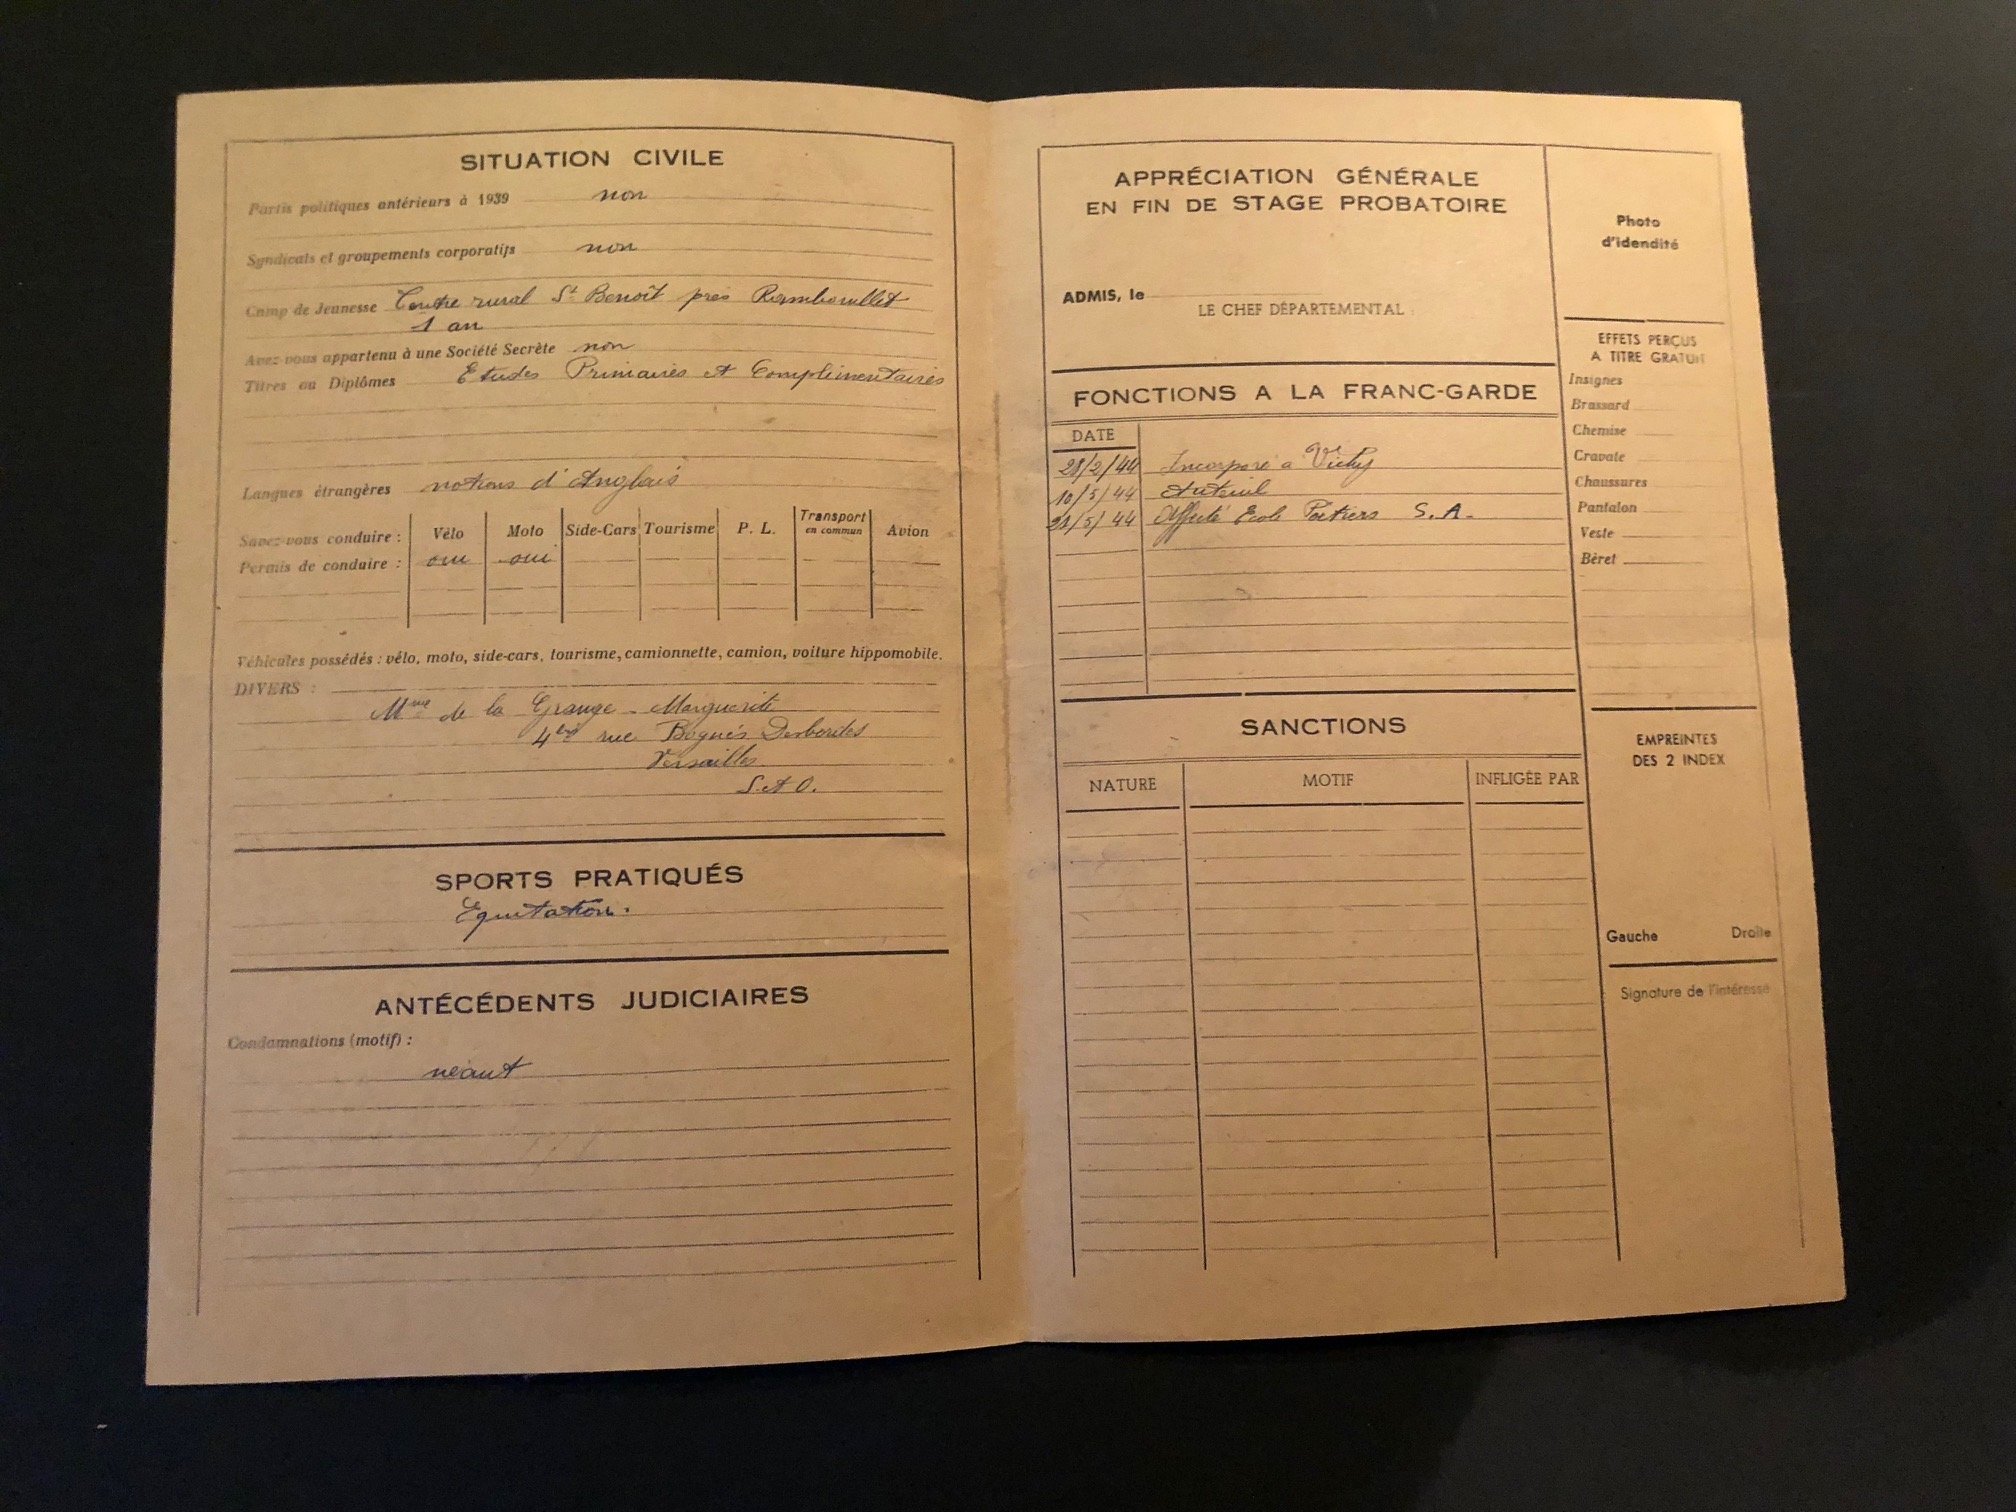 SITUATION CIVILE
Partis politiques antérieurs à 1939 non
Syndicats et groupements corporatifs non
Camp de Jeunesse Centre rural St Benoît près Rambouillet
1 an
Avez-vous appartenu à une Société Secrète non
Titres ou Diplômes Etudes Primaires et Complimentaires
Langues étrangères notions d'Anglais
Savez-vous conduire : Vélo Moto Side-Cars Tourisme P. L. Transport en commun Avion
Permis de conduire : oui oui
Véhicules possédés : vélo, moto, side-cars, tourisme, camionnette, camion, voiture hippomobile.
DIVERS :
Mme de la Grange - Marguerite
4bis rue Desbordes
Versailles
S. et O.
SPORTS PRATIQUÉS
Equitation.
ANTÉCÉDENTS JUDICIAIRES
Condamnations (motif) :
néant
APPRÉCIATION GÉNÉRALE
EN FIN DE STAGE PROBATOIRE
ADMIS, le
LE CHEF DÉPARTEMENTAL
FONCTIONS A LA FRANC-GARDE
DATE
28/2/44 Incorporé a Vichy
10/5/44 Auteuil
21/5/44 Affecté Ecole Poitiers S.A.
SANCTIONS
NATURE MOTIF INFLIGÉE PAR
Photo
d'idendité
EFFETS PERÇUS
A TITRE GRATUIT
Insignes
Brassard
Chemise
Cravate
Chaussures
Pantalon
Veste
Bèret
EMPREINTES
DES 2 INDEX
Gauche Droite
Signature de l'intéressé